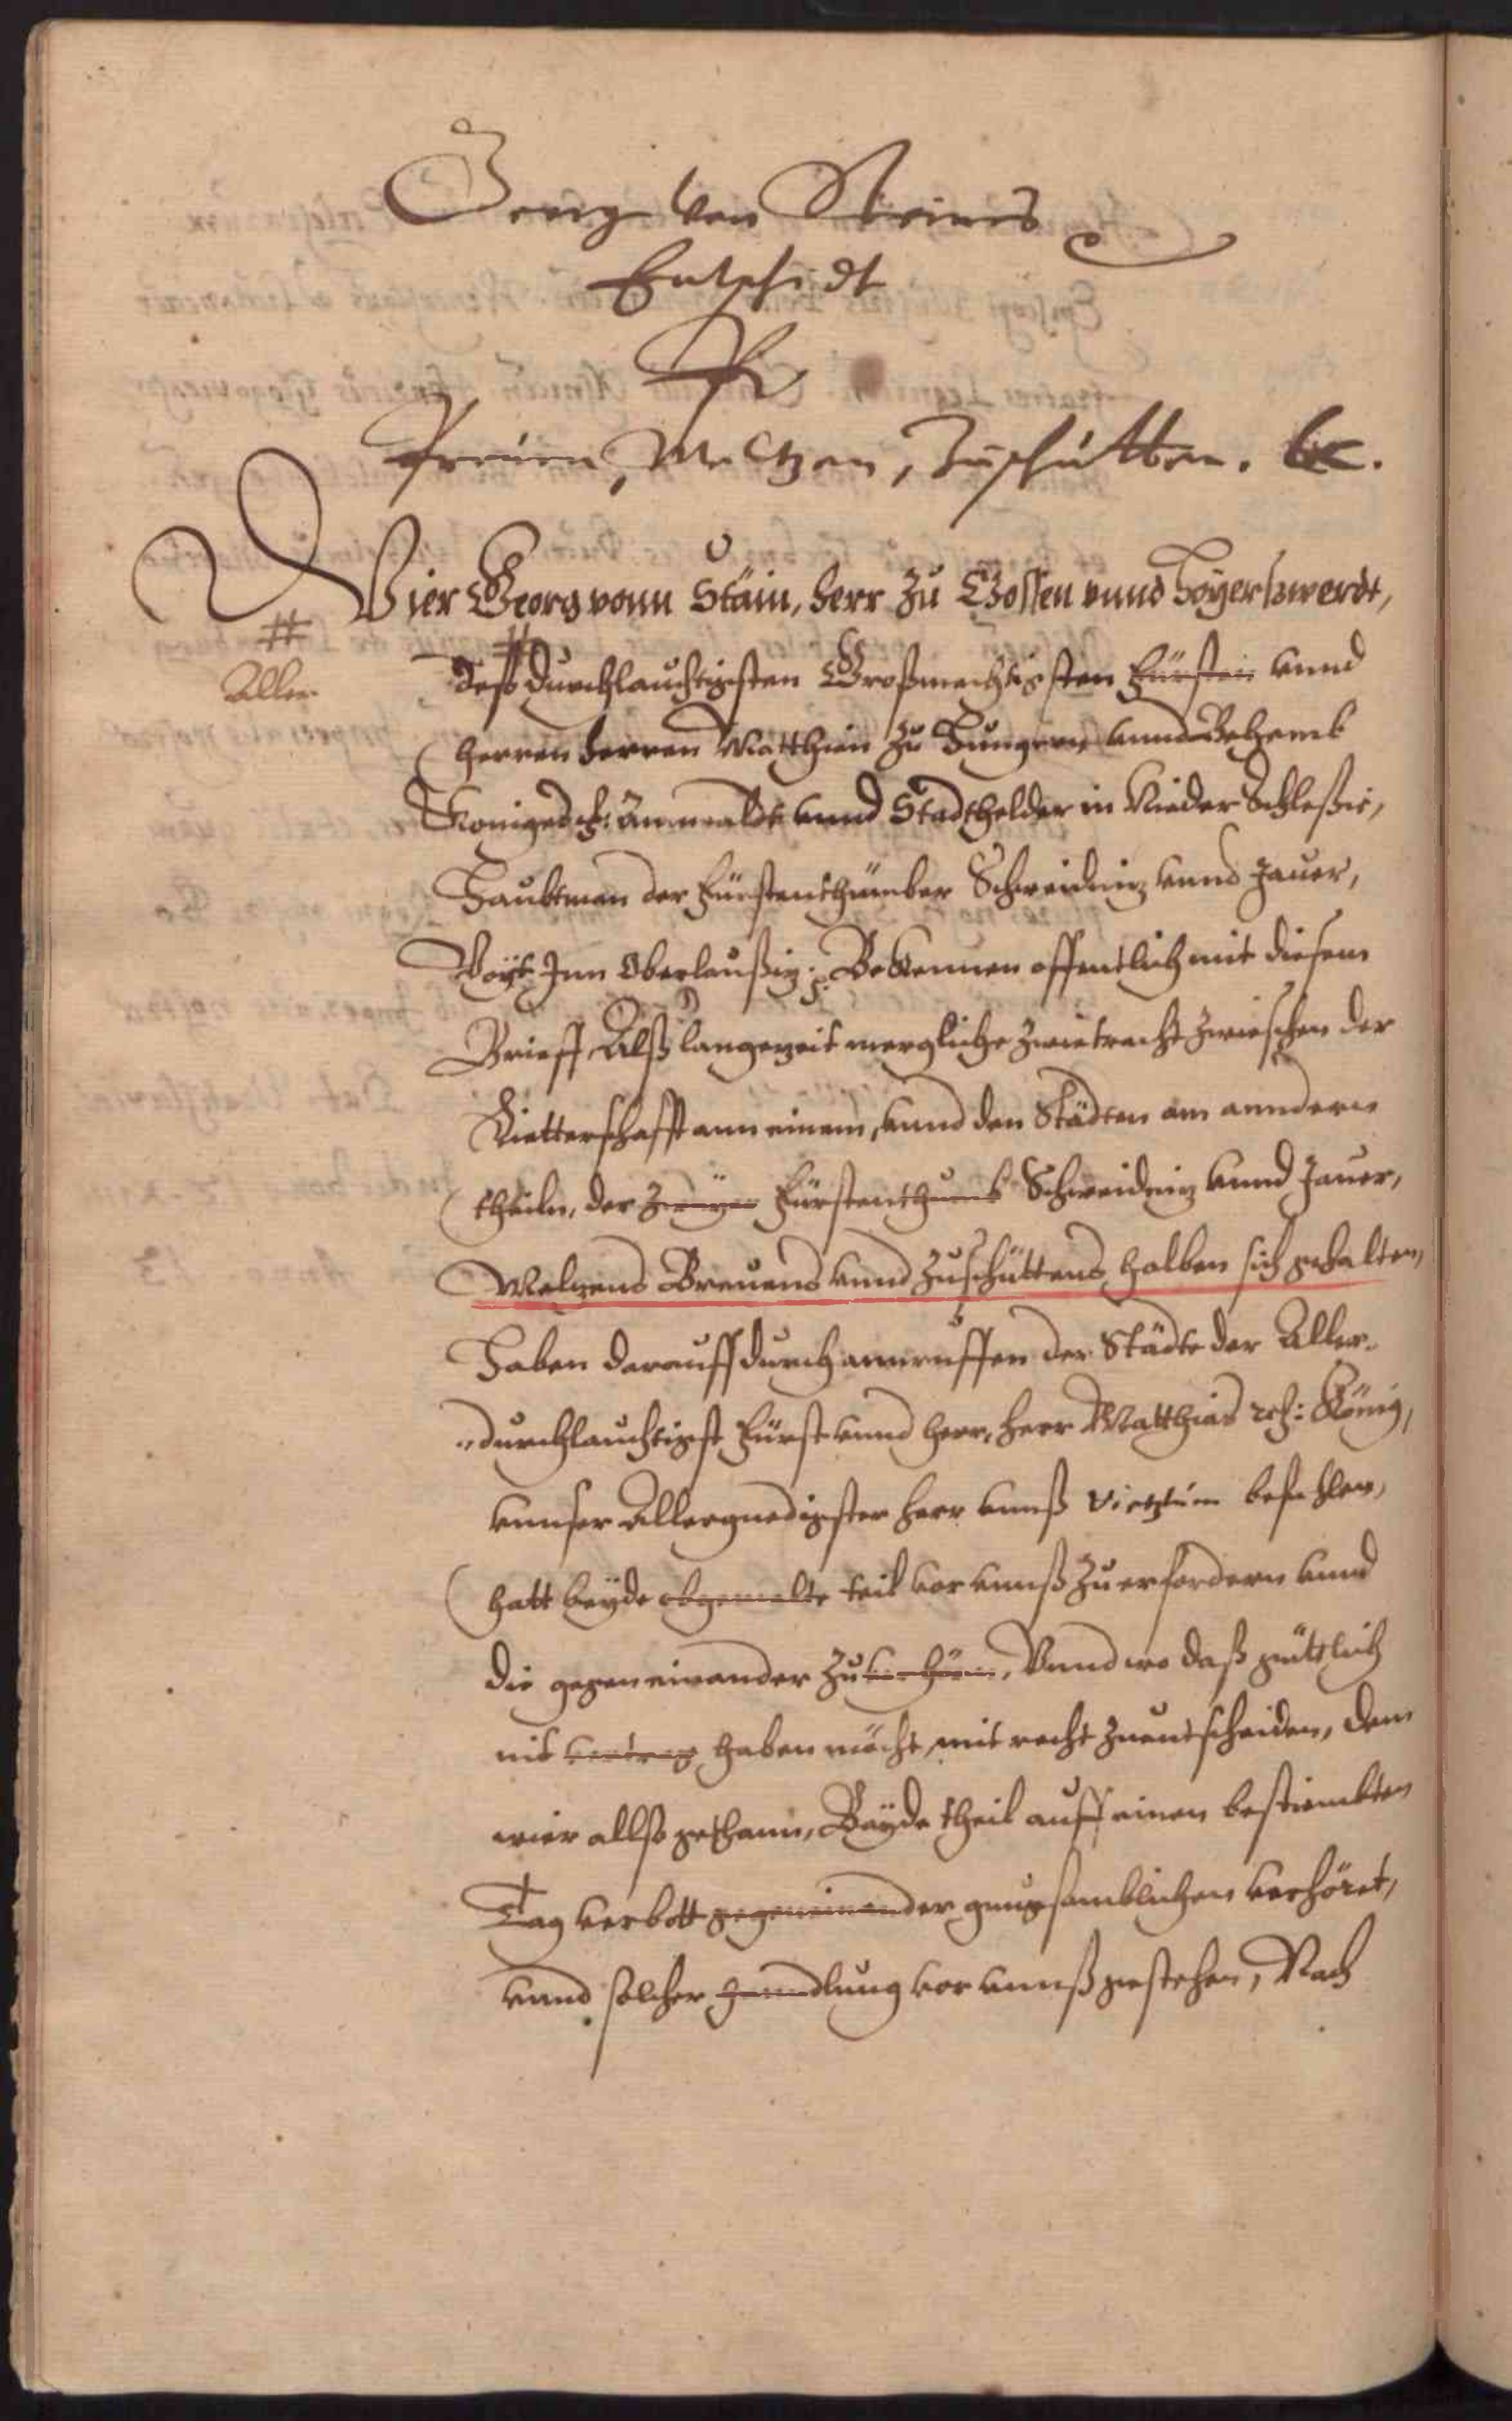 Georg von Steines
Entschidt
Pr
Preuen, Meltzen, Zuschütten. &c.
Wier Georg vonn Stäin, herr zu Zossen vnnd Hoyerßwerdt,
#
Aller
# deß durchlauchtigsten Großmechtigsten Fürsten vnnd
herren herren Matthien zu Hungern vnnd Behemb
Koniges Anwaldt vnnd Stadthelder in Nieder Schleßie,
Haubtman der Fürstenthümber Schweidniz vnnd Jauer,
Voyt Inn Oberlaußiz: Bekennen offentlich mit diesem
Brieff, Alß langezeit mergliche zwietracht zwieschen der
Rietterschafft ann einem, vnnd den Städten am anndern
theiln, der zweyer Fürstenthumb Schweidniz vnnd Jauer,
Melzens Breuens vnnd zuschüttens halben sich gehalten,
Haben darauff durch annruffen der Städte der Aller-
durchlauchtigst Fürst vnnd herr, herr Matthias König,
vnnser Allergnedigster herr vnnß befohlen,
hatt beyde obgemelte teil vor vnnß zu erfordern vnnd
die gegen einander zu verhören, Vnnd wo daß güttlich
nit vertrag haben möcht, mit recht zu entscheiden, dem
wier allso gethann, Bayde theil auff einen bestiembten
Tag verbott gegeneinander gnugsamblichen verhöret,
vnnd solcher hanndlung vor vnnß gestehen, Nach